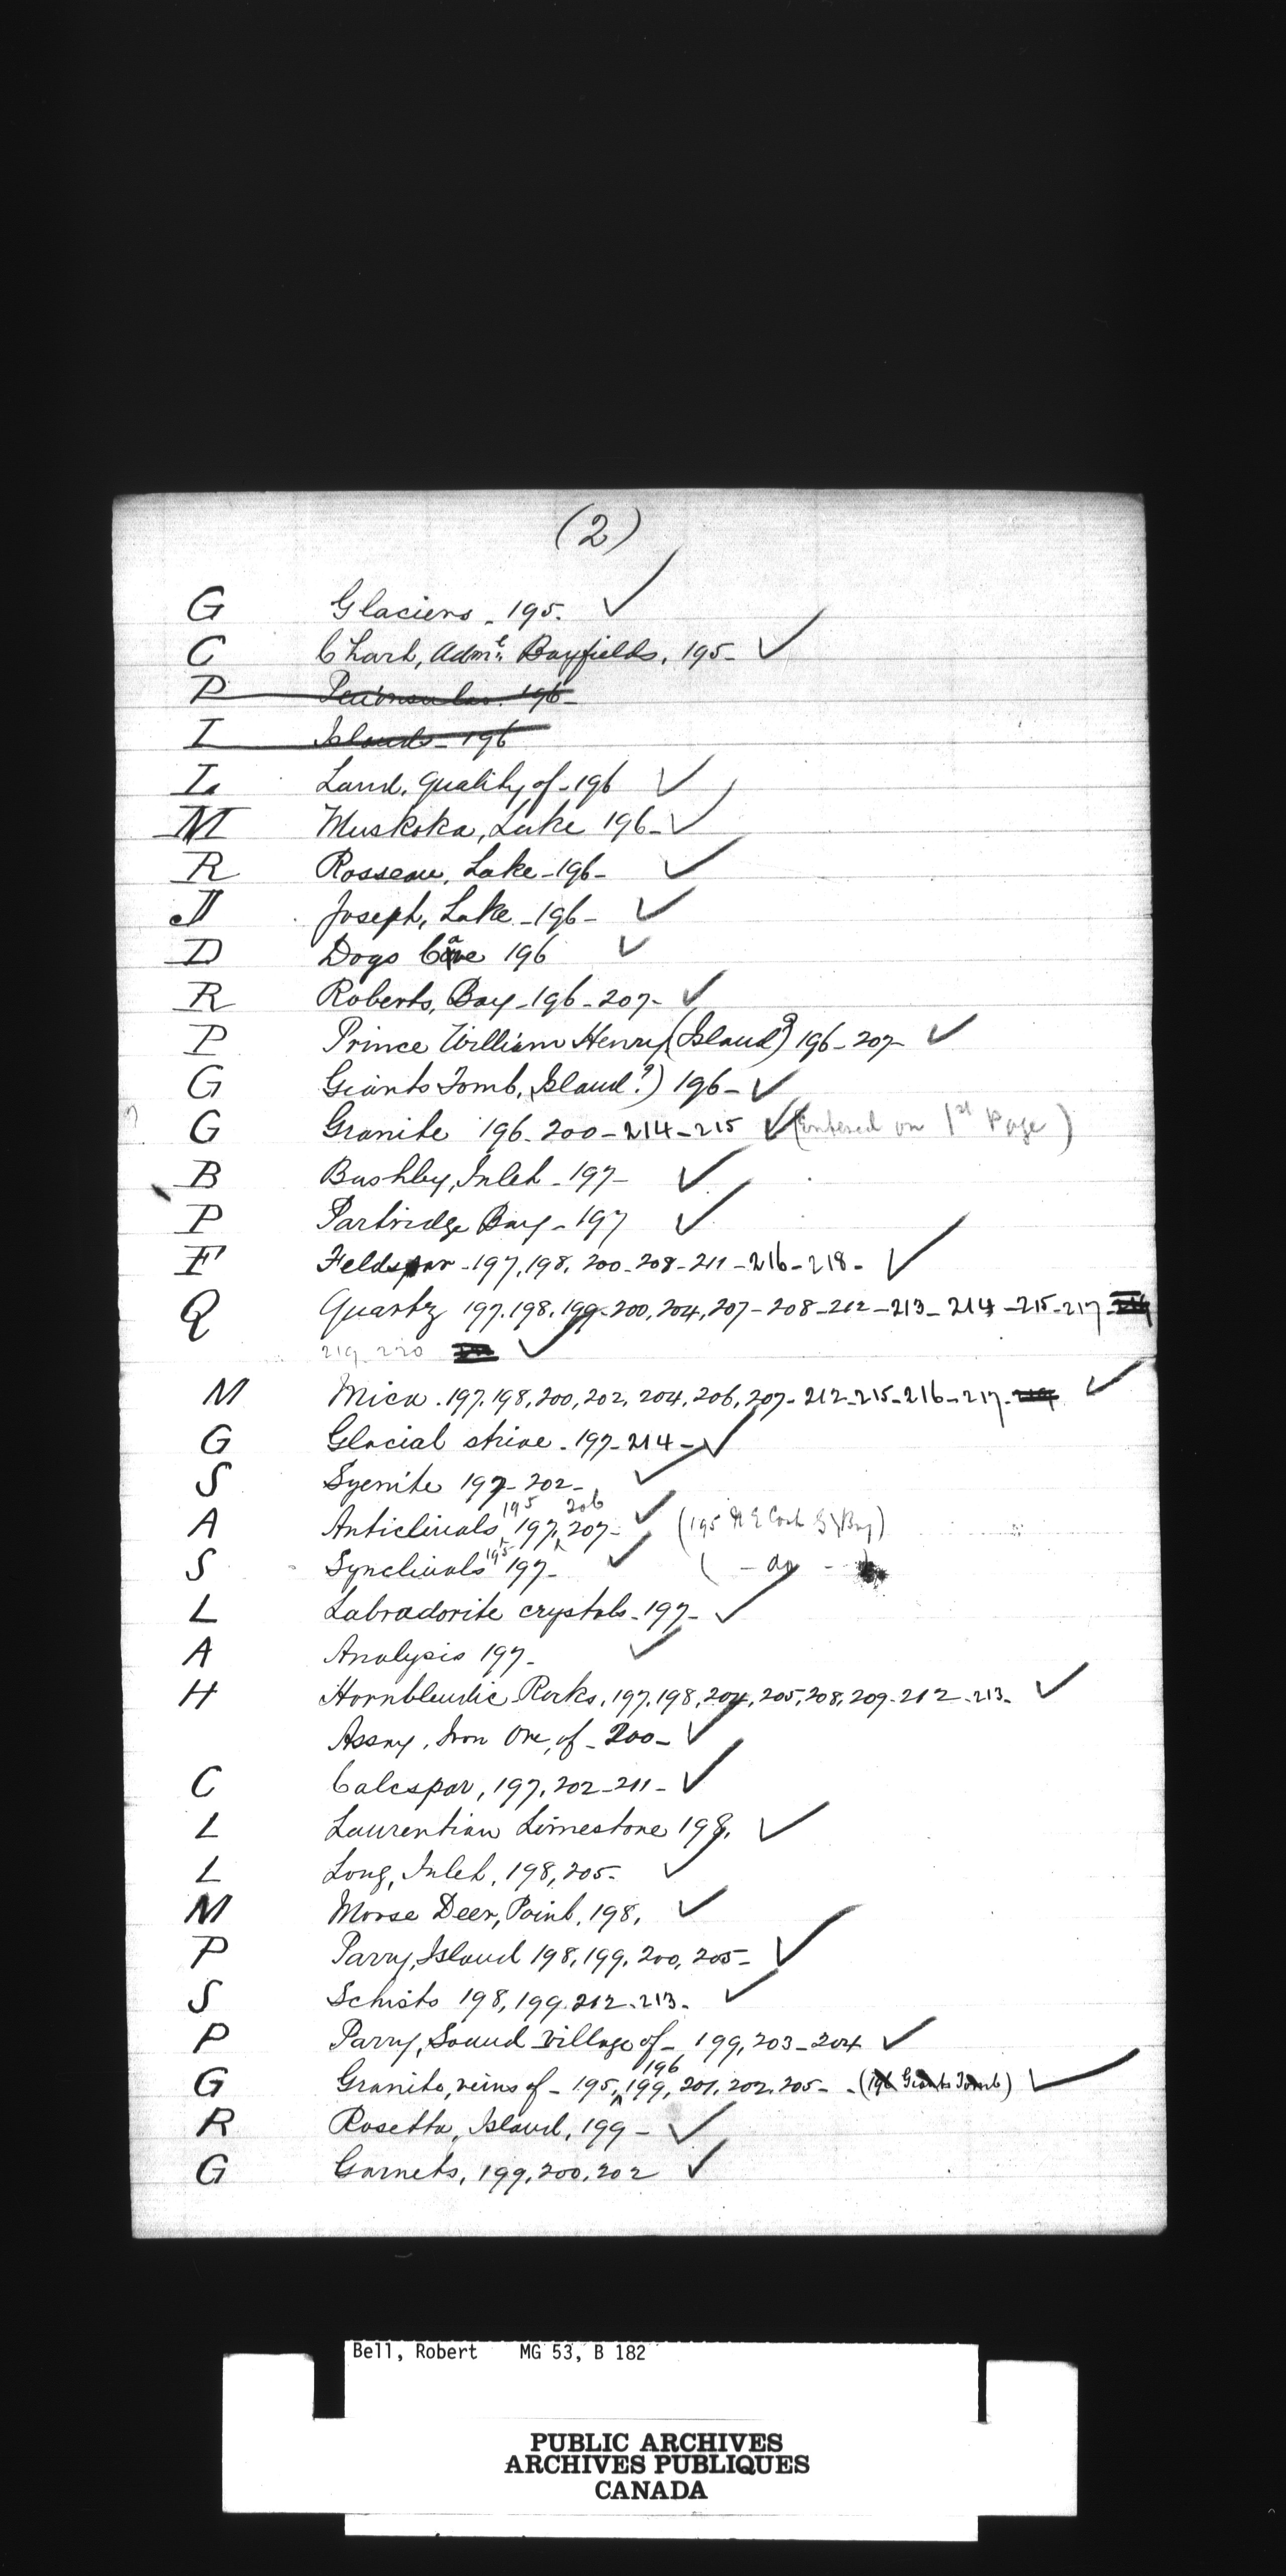 (2)
G Glaciers - 195. ✓
C Chart, Adml. Bayfields, 195- ✓
P Peninsular. 196-
I Islands - 196
L Land, Quality of - 196 ✓
M Muskoka, Lake 196- ✓
R Rosseau, Lake - 196- ✓
J Joseph, Lake - 196- ✓
D Dogs Cave 196 ✓
R Roberts, Bay - 196 - 207- ✓
P Prince William Henry (Island?) 196 - 207 ✓
G Giants Tomb, Island?) 196- ✓
G Granite 196 - 200 - 214 - 215 ✓ (Entered on 1st Page)
B Bushby, Inlet - 197- ✓
P Partridge Bay - 197 ✓
F Feldspar - 197, 198, 200 - 208 - 211 - 216 - 218 - ✓
Q Quartz 197. 198. 199 - 200, 204, 207 - 208 - 212 - 213 - 214 - 215 - 217
219 - 220 ✓
M Mica . 197. 198, 200, 202, 204, 206, 207 - 212 - 215 - 216 - 217 - ✓
G Glacial striae - 197 - 214 - ✓
S Syenite 197 - 202 - ✓
A Anticlinals, 195 197, 206 207 - ✓ (195 N E Coast G. Bay)
S Synclinals 195 197 - ✓ ( - do - )
L Labradorite crystals - 197 - ✓
A Analysis 197 - ✓
H Hornblendic Rocks, 197, 198, 204, 205, 208, 209 - 212 - 213 - ✓
Assay, Iron Ore, of - 200 - ✓
C Calcspar, 197, 202 - 211 - ✓
L Laurentian Limestone 198. ✓
L Long, Inlet, 198, 205 - ✓
M Moose Deer, Point, 198, ✓
P Parry, Island 198, 199, 200, 205 - ✓
S Schists 198, 199. 212 - 213 - ✓
P Parry, Sound Village of - 199, 203 - 204 ✓
G Granite, veins of - 195, 196 199, 201, 202, 205 - - (196 Giants Tomb) ✓
R Rosetta, Island, 199 - ✓
G Garnets, 199, 200, 202 ✓
Bell, Robert MG 53, B 182
PUBLIC ARCHIVES
ARCHIVES PUBLIQUES
CANADA